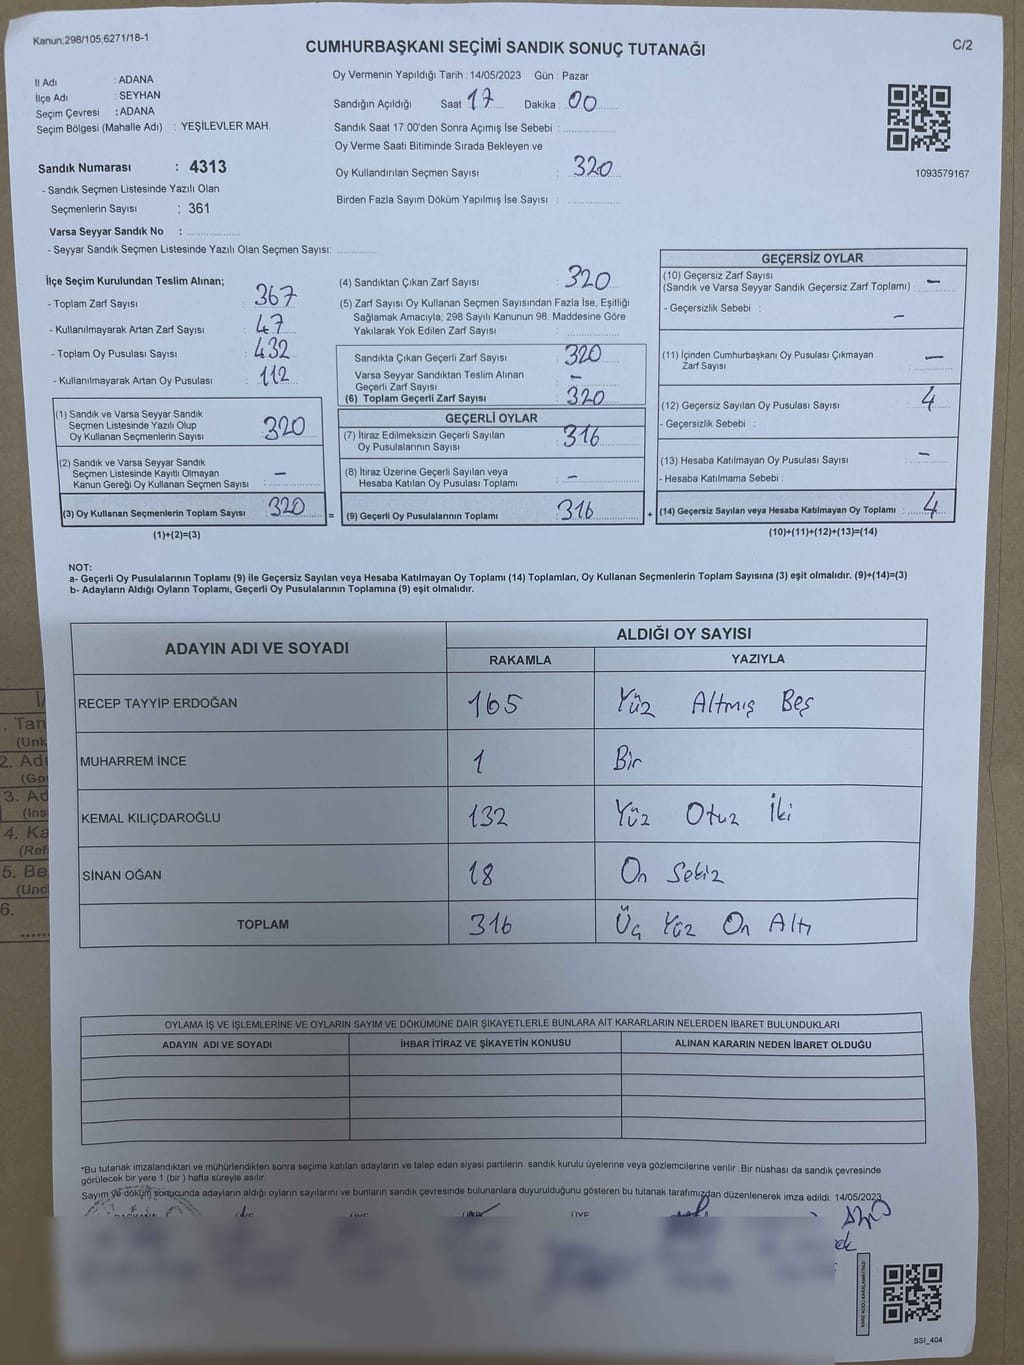 Kanun;298/105;6271/18-1
CUMHURBAŞKANI SEÇİMİ SANDIK SONUÇ TUTANAĞI
C/2
İl Adı : ADANA
İlçe Adı : SEYHAN
Seçim Çevresi : ADANA
Seçim Bölgesi (Mahalle Adı) : YEŞİLEVLER MAH.
Sandık Numarası : 4313
- Sandık Seçmen Listesinde Yazılı Olan
Seçmenlerin Sayısı : 361
Varsa Seyyar Sandık No :
- Seyyar Sandık Seçmen Listesinde Yazılı Olan Seçmen Sayısı:
Oy Vermenin Yapıldığı Tarih : 14/05/2023 Gün : Pazar
Sandığın Açıldığı Saat 17 Dakika : 00
Sandık Saat 17.00'den Sonra Açımış İse Sebebi :
Oy Verme Saati Bitiminde Sırada Bekleyen ve
Oy Kullandırılan Seçmen Sayısı : 320
Birden Fazla Sayım Döküm Yapılmış İse Sayısı :
1093579167
İlçe Seçim Kurulundan Teslim Alınan;
- Toplam Zarf Sayısı : 367
- Kullanılmayarak Artan Zarf Sayısı : 47
- Toplam Oy Pusulası Sayısı : 432
- Kullanılmayarak Artan Oy Pusulası : 112
(1) Sandık ve Varsa Seyyar Sandık
Seçmen Listesinde Yazılı Olup
Oy Kullanan Seçmenlerin Sayısı : 320
(2) Sandık ve Varsa Seyyar Sandık
Seçmen Listesinde Kayıtlı Olmayan
Kanun Gereği Oy Kullanan Seçmen Sayısı : —
(3) Oy Kullanan Seçmenlerin Toplam Sayısı : 320
(1)+(2)=(3)
=
(4) Sandıktan Çıkan Zarf Sayısı : 320
(5) Zarf Sayısı Oy Kullanan Seçmen Sayısından Fazla İse, Eşitliği
Sağlamak Amacıyla; 298 Sayılı Kanunun 98. Maddesine Göre
Yakılarak Yok Edilen Zarf Sayısı :
Sandıkta Çıkan Geçerli Zarf Sayısı : 320
Varsa Seyyar Sandıktan Teslim Alınan
Geçerli Zarf Sayısı : —
(6) Toplam Geçerli Zarf Sayısı : 320
GEÇERLİ OYLAR
(7) İtiraz Edilmeksizin Geçerli Sayılan
Oy Pusulalarının Sayısı : 316
(8) İtiraz Üzerine Geçerli Sayılan veya
Hesaba Katılan Oy Pusulası Toplamı : —
(9) Geçerli Oy Pusulalarının Toplamı : 316
+
GEÇERSİZ OYLAR
(10) Geçersiz Zarf Sayısı
(Sandık ve Varsa Seyyar Sandık Geçersiz Zarf Toplamı) : —
- Geçersizlik Sebebi : —
(11) İçinden Cumhurbaşkanı Oy Pusulası Çıkmayan
Zarf Sayısı : —
(12) Geçersiz Sayılan Oy Pusulası Sayısı : 4
- Geçersizlik Sebebi :
(13) Hesaba Katılmayan Oy Pusulası Sayısı : —
- Hesaba Katılmama Sebebi :
(14) Geçersiz Sayılan veya Hesaba Katılmayan Oy Toplamı : 4
(10)+(11)+(12)+(13)=(14)
NOT:
a- Geçerli Oy Pusulalarının Toplamı (9) ile Geçersiz Sayılan veya Hesaba Katılmayan Oy Toplamı (14) Toplamları, Oy Kullanan Seçmenlerin Toplam Sayısına (3) eşit olmalıdır. (9)+(14)=(3)
b- Adayların Aldığı Oyların Toplamı, Geçerli Oy Pusulalarının Toplamına (9) eşit olmalıdır.
ADAYIN ADI VE SOYADI
ALDIĞI OY SAYISI
RAKAMLA YAZIYLA
RECEP TAYYİP ERDOĞAN 165 Yüz Altmış Beş
MUHARREM İNCE 1 Bir
KEMAL KILIÇDAROĞLU 132 Yüz Otuz İki
SİNAN OĞAN 18 On Sekiz
TOPLAM 316 Üç Yüz On Altı
OYLAMA İŞ VE İŞLEMLERİNE VE OYLARIN SAYIM VE DÖKÜMÜNE DAİR ŞİKAYETLERLE BUNLARA AİT KARARLARIN NELERDEN İBARET BULUNDUKLARI
ADAYIN ADI VE SOYADI İHBAR İTİRAZ VE ŞİKAYETİN KONUSU ALINAN KARARIN NEDEN İBARET OLDUĞU
*Bu tutanak imzalandıktan ve mühürlendikten sonra seçime katılan adayların ve talep eden siyasi partilerin sandık kurulu üyelerine veya gözlemcilerine verilir .Bir nüshası da sandık çevresinde
görülecek bir yere 1 (bir ) hafta süreyle asılır
Sayım ve döküm sonucunda adayların aldığı oyların sayılarını ve bunların sandık çevresinde bulunanlara duyurulduğunu gösteren bu tutanak tarafımızdan düzenlenerek imza edildi. 14/05/2023
SSI_404